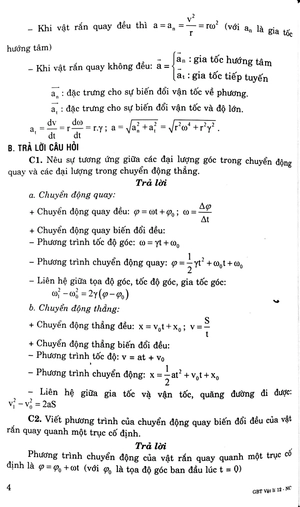 – Khi vật rắn quay đều thì a = aₙ = v²/r = rω² (với aₙ là gia tốc
hướng tâm)
– Khi vật rắn quay không đều: a⃗ = { a⃗ₙ : gia tốc hướng tâm
a⃗ₜ : gia tốc tiếp tuyến
a⃗ₙ : đặc trưng cho sự biến đổi vận tốc về phương.
a⃗ₜ : đặc trưng cho sự biến đổi vận tốc và độ lớn.
aₜ = dv/dt = r dω/dt = r.γ ; a = √(aₙ² + aₜ²) = √(r²ω⁴ + r²γ²) .
B. TRẢ LỜI CÂU HỎI
C1. Nêu sự tương ứng giữa các đại lượng góc trong chuyển động
quay và các đại lượng trong chuyển động thẳng.
Trả lời
a. Chuyển động quay:
+ Chuyển động quay đều: φ = ωt + φ₀ ; ω = Δφ/Δt
+ Chuyển động quay biến đổi đều:
– Phương trình tốc độ góc: ω = γt + ω₀
– Phương trình chuyển động quay: φ = 1/2 γt² + ω₀t + φ₀
– Liên hệ giữa tọa độ góc, tốc độ góc, gia tốc góc:
ω₁² – ω₀² = 2γ(φ – φ₀)
b. Chuyển động thẳng:
+ Chuyển động thẳng đều: x = v₀t + x₀ ; v = S/t
+ Chuyển động thẳng biến đổi đều:
– Phương trình tốc độ: v = at + v₀
– Phương trình chuyển động: x = 1/2 at² + v₀t + x₀
– Liên hệ giữa gia tốc và vận tốc, quãng đường đi được:
v₁² – v₀² = 2aS
C2. Viết phương trình của chuyển động quay biến đổi đều của vật
rắn quay quanh một trục cố định.
Trả lời
Phương trình chuyển động của vật rắn quay quanh một trục cố
định là φ = φ₀ + ωt (với φ₀ là tọa độ góc ban đầu lúc t = 0)
4
GBT Vật lí 12 - NC